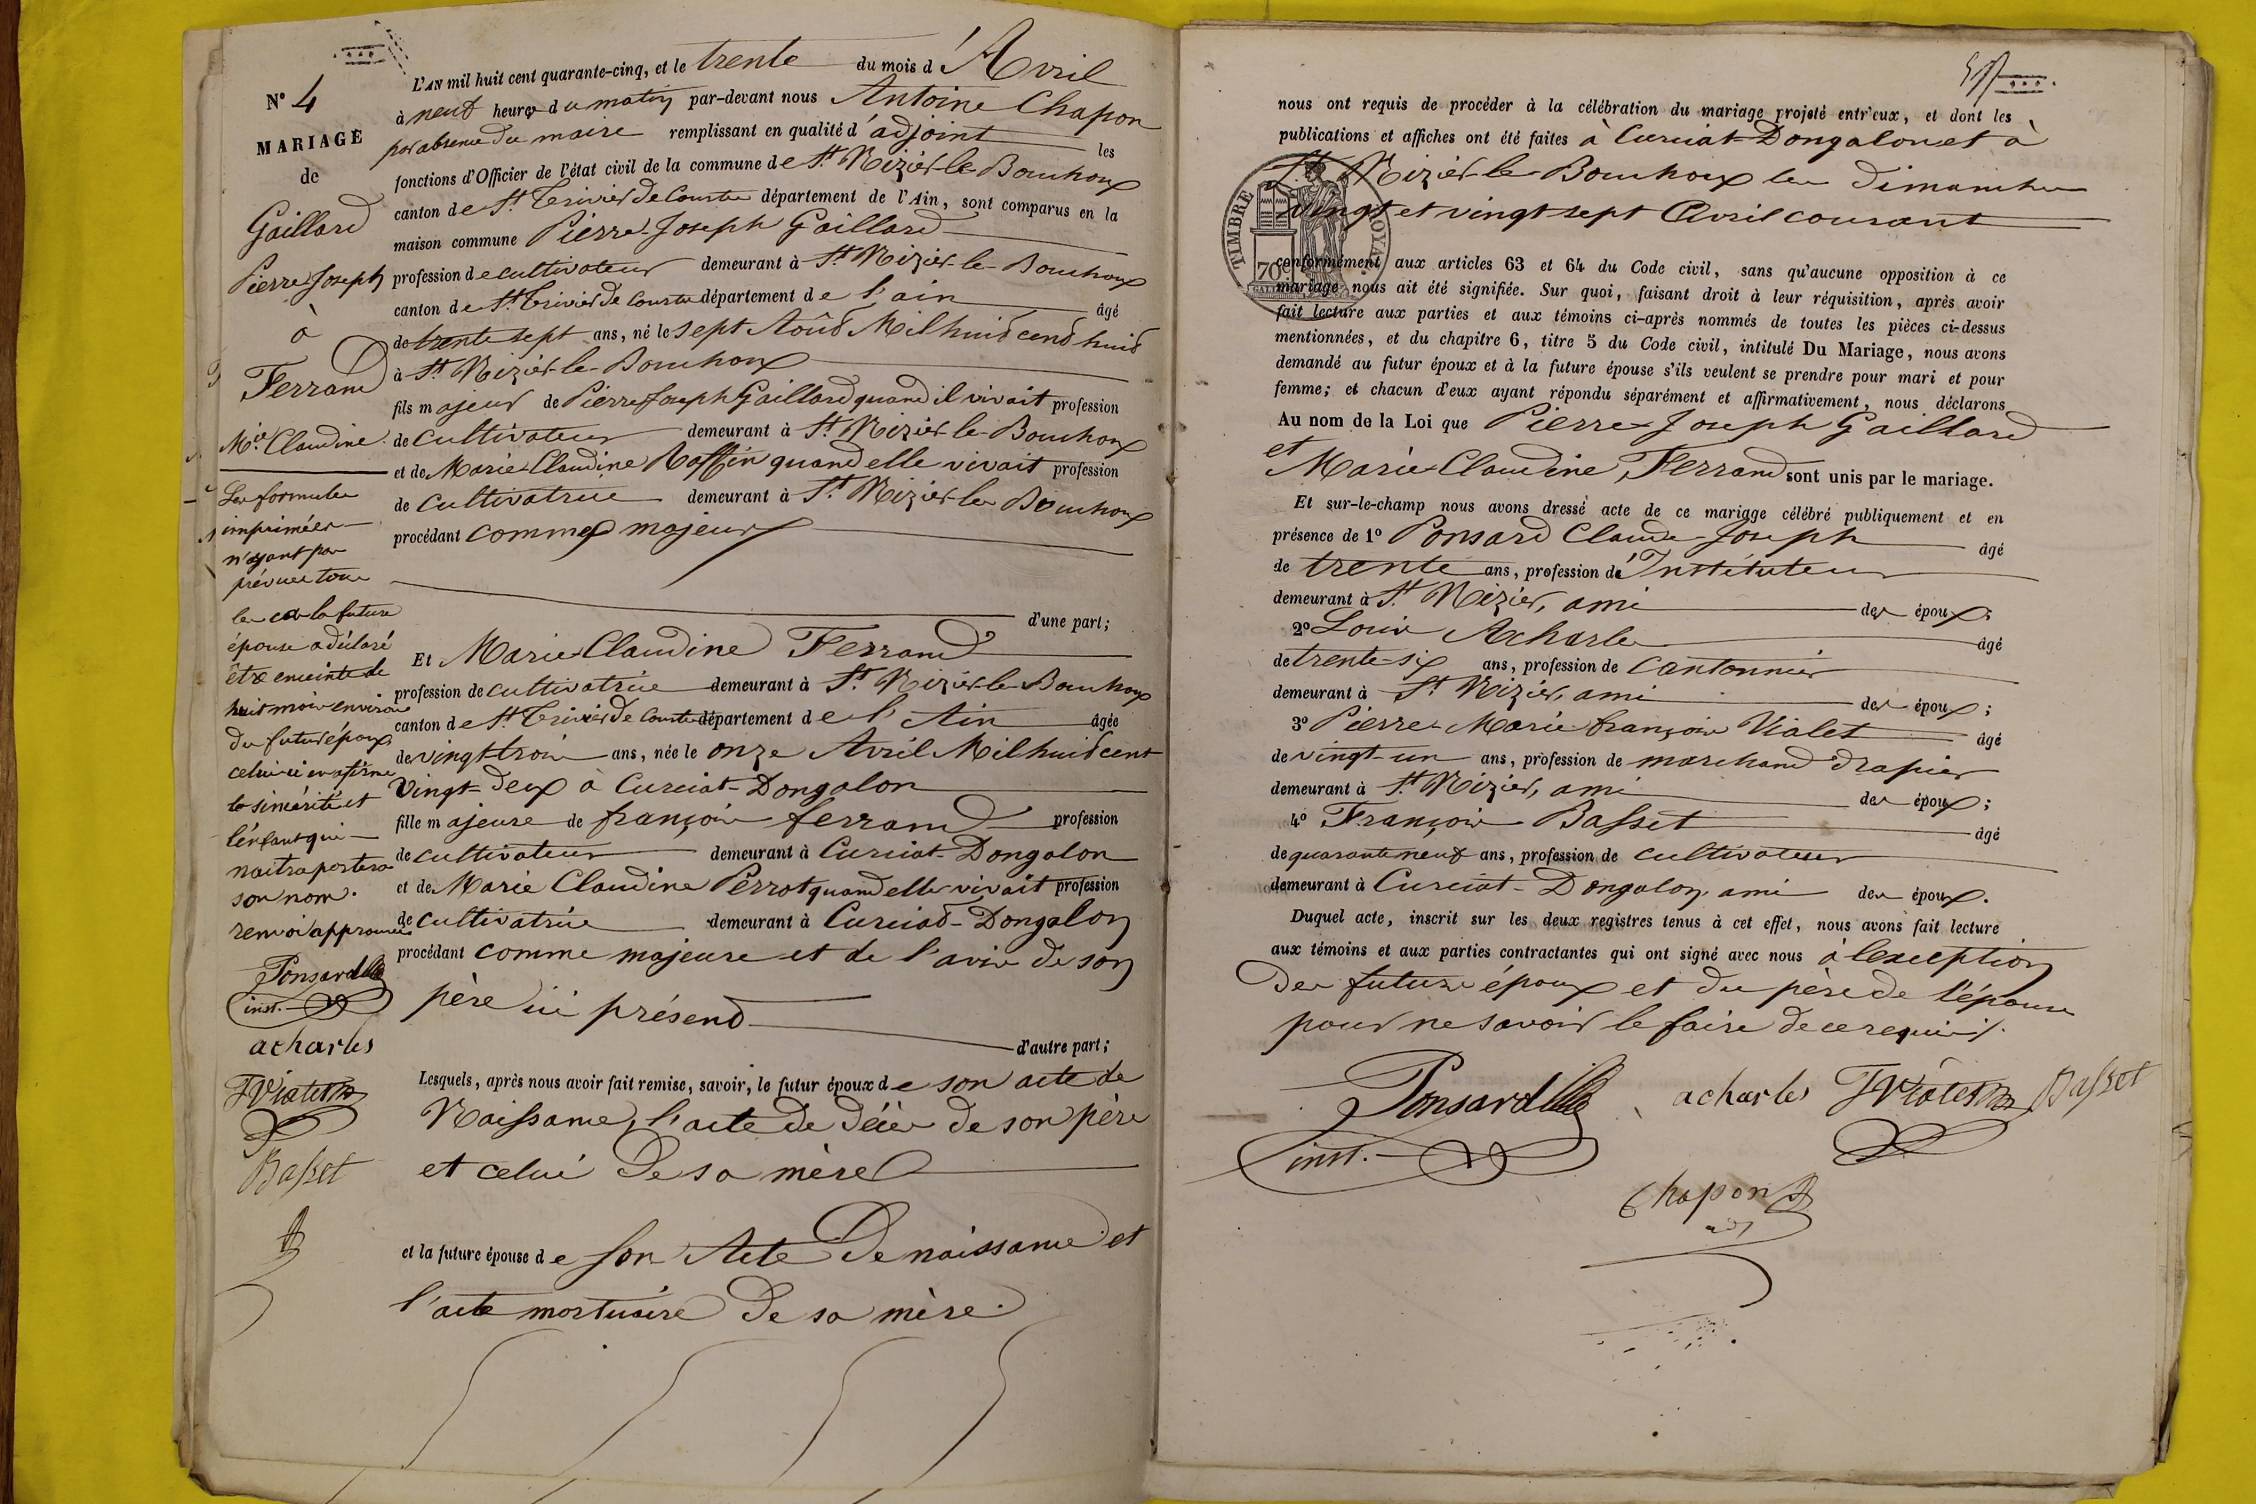 N° 4
MARIAGE
de
Gaillard
Pierre Joseph
à
Ferrand
M.ie Claudine
Les formules
imprimées
n'ayant pas
prévues tous
les cas la future
épouse a déclaré
être enceinte de
huit mois environ
du futur époux
celui-ci en affirme
la sincérité et
l'enfant qui
naitra portera
son nom.
renvoi approuvé
Ponsard
inst.
acharles
Vialet
Basset
L'AN mil huit cent quarante-cinq, et le trente du mois d'Avril
à neuf heures du matin par-devant nous Antoine Chapon
par absence du maire remplissant en qualité d'adjoint les
fonctions d'Officier de l'état civil de la commune de St Nizier-le-Bouchoux
canton de St Trivier de Courtes département de l'Ain, sont comparus en la
maison commune Pierre-Joseph Gaillard
profession de cultivateur demeurant à St Nizier-le-Bouchoux
canton de St Trivier de Courtes département de l'ain âgé
de trente sept ans, né le sept Août Mil huit cent huit
à St Nizier-le-Bouchoux
fils majeur de Pierre Joseph Gaillard quand il vivait profession
de cultivateur demeurant à St Nizier-le-Bouchoux
et de Marie-Claudine Roffin quand elle vivait profession
de cultivatrice demeurant à St Nizier-le-Bouchoux
procédant comme majeur
d'une part;
Et Marie-Claudine Ferrand
profession de cultivatrice demeurant à St Nizier-le-Bouchoux
canton de St Trivier de Courtes département de l'Ain âgée
de vingt trois ans, née le onze Avril Mil huit cent
Vingt-deux à Curciat-Dongalon
fille majeure de françois ferrand profession
de cultivateur demeurant à Curciat-Dongalon
et de Marie Claudine Perrot quand elle vivait profession
de cultivatrice demeurant à Curciat-Dongalon
procédant comme majeure et de l'avis de son
père ici présent
d'autre part;
Lesquels, après nous avoir fait remise, savoir, le futur époux de son acte de
Naissance, l'acte de décès de son père
et celui de sa mère
et la future épouse de son Acte de naissance et
l'acte mortuaire de sa mère.
nous ont requis de procéder à la célébration du mariage projeté entr'eux, et dont les
publications et affiches ont été faites à Curciat-Dongalon et à
St Nizier-le-Bouchoux les dimanches
vingt et vingt sept Avril courant
TIMBRE ROYAL
70 c
conformément aux articles 63 et 64 du Code civil, sans qu'aucune opposition à ce
mariage nous ait été signifiée. Sur quoi, faisant droit à leur réquisition, après avoir
fait lecture aux parties et aux témoins ci-après nommés de toutes les pièces ci-dessus
mentionnées, et du chapitre 6, titre 5 du Code civil, intitulé Du Mariage, nous avons
demandé au futur époux et à la future épouse s'ils veulent se prendre pour mari et pour
femme; et chacun d'eux ayant répondu séparément et affirmativement, nous déclarons
Au nom de la Loi que Pierre-Joseph Gaillard
et Marie-Claudine Ferrand sont unis par le mariage.
Et sur-le-champ nous avons dressé acte de ce mariage célébré publiquement et en
présence de 1° Ponsard Claude-Joseph âgé
de trente ans, profession d'Instituteur
demeurant à St Nizier, ami des époux;
2° Louis Acharles âgé
de trente-six ans, profession de cantonnier
demeurant à St Nizier, ami des époux;
3° Pierre-Marie françois Vialet âgé
de vingt-un ans, profession de marchand drapier
demeurant à St Nizier, ami des époux;
4° François Basset âgé
de quarante neuf ans, profession de cultivateur
demeurant à Curciat-Dongalon, ami des époux.
Duquel acte, inscrit sur les deux registres tenus à cet effet, nous avons fait lecture
aux témoins et aux parties contractantes qui ont signé avec nous à l'exception
des futurs époux et du père de l'épouse
pour ne savoir le faire de ce requis.
Ponsard acharles Vialet Basset
inst.
Chapon
adj